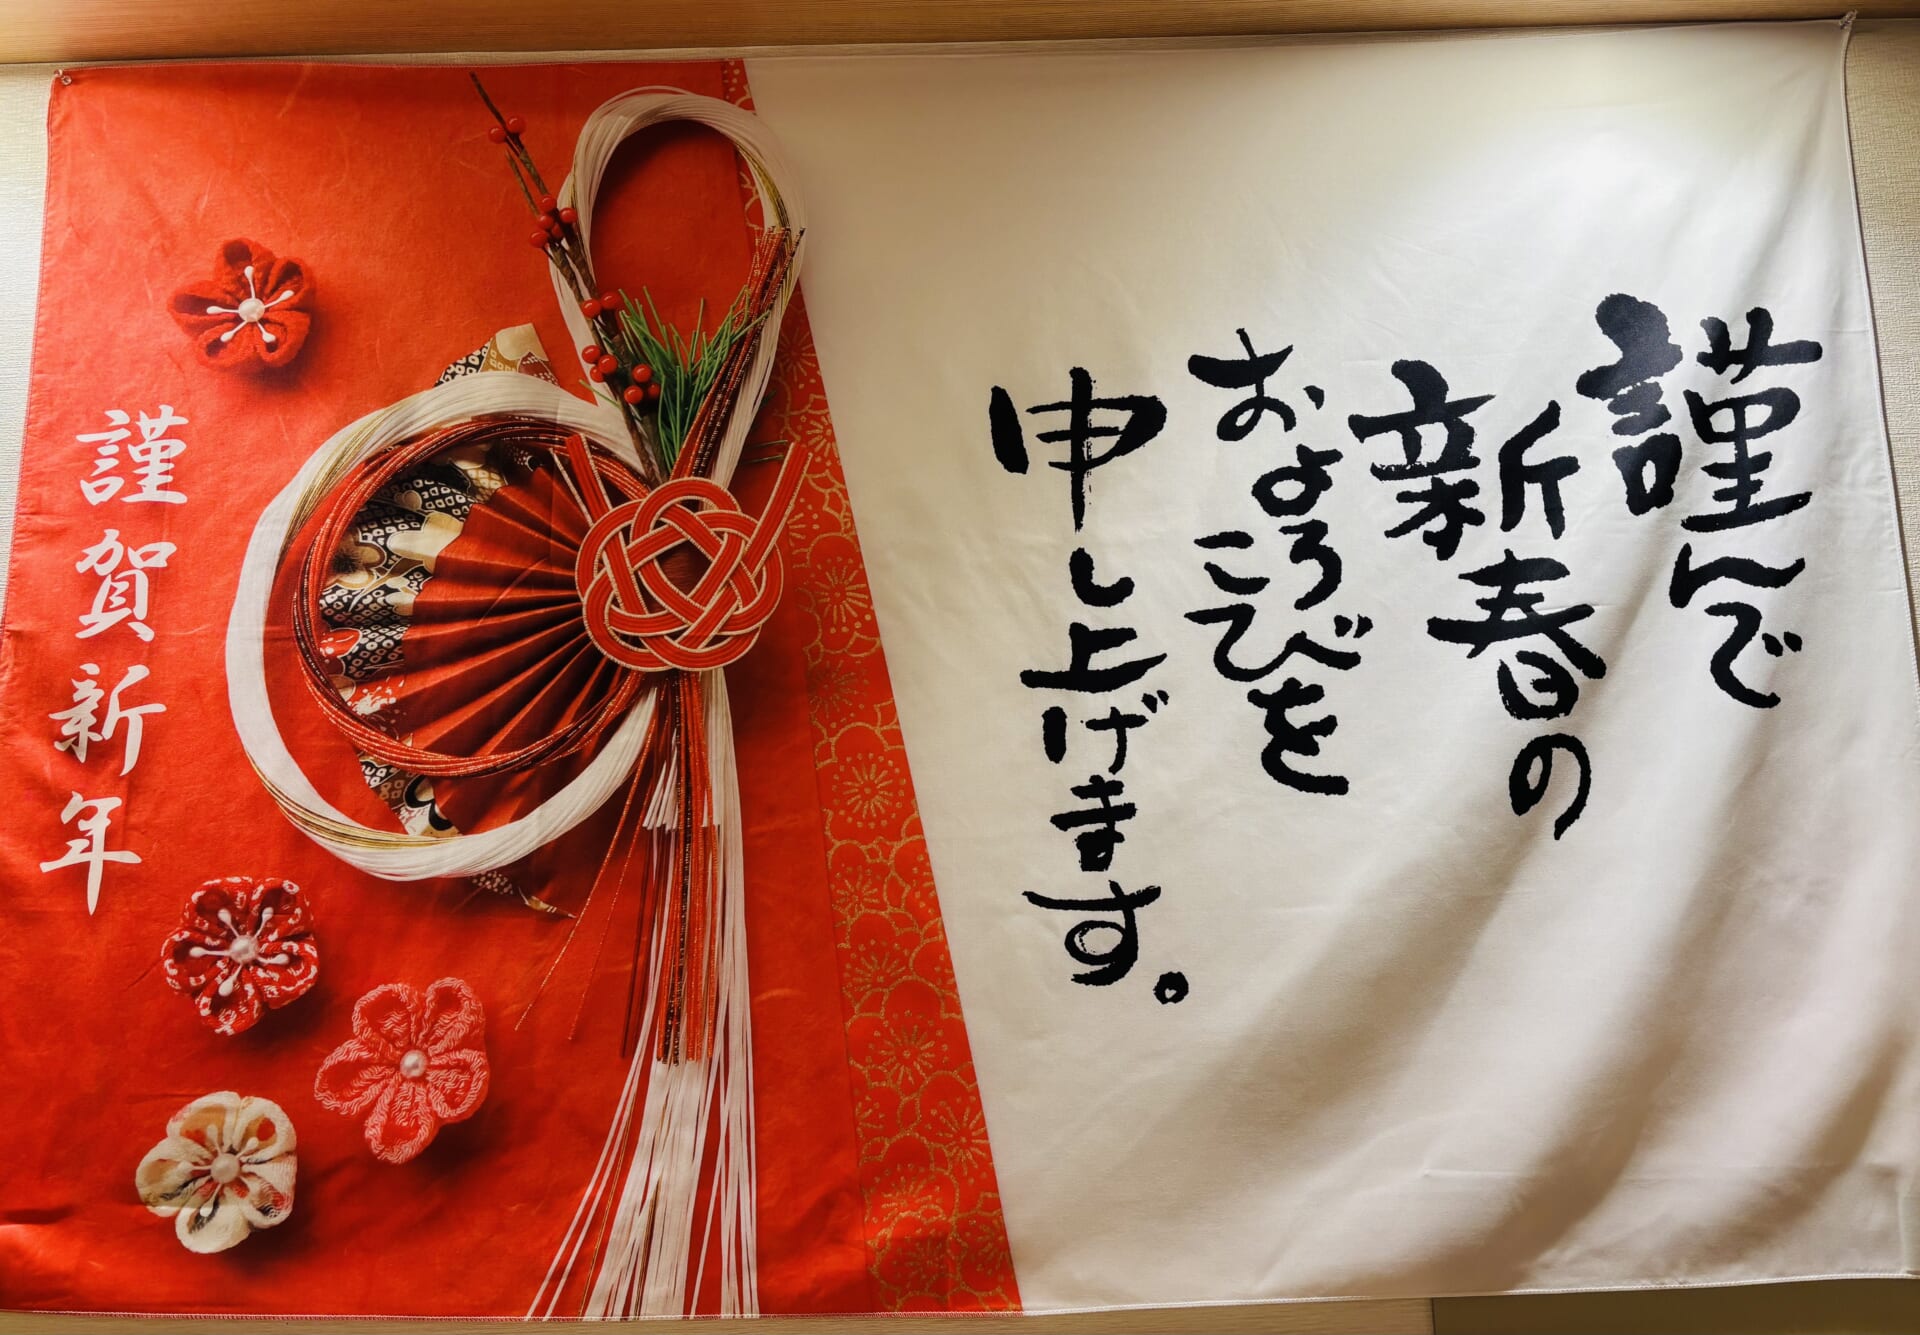 謹んで
新春の
およろこびを
申し上げます。
謹賀新年